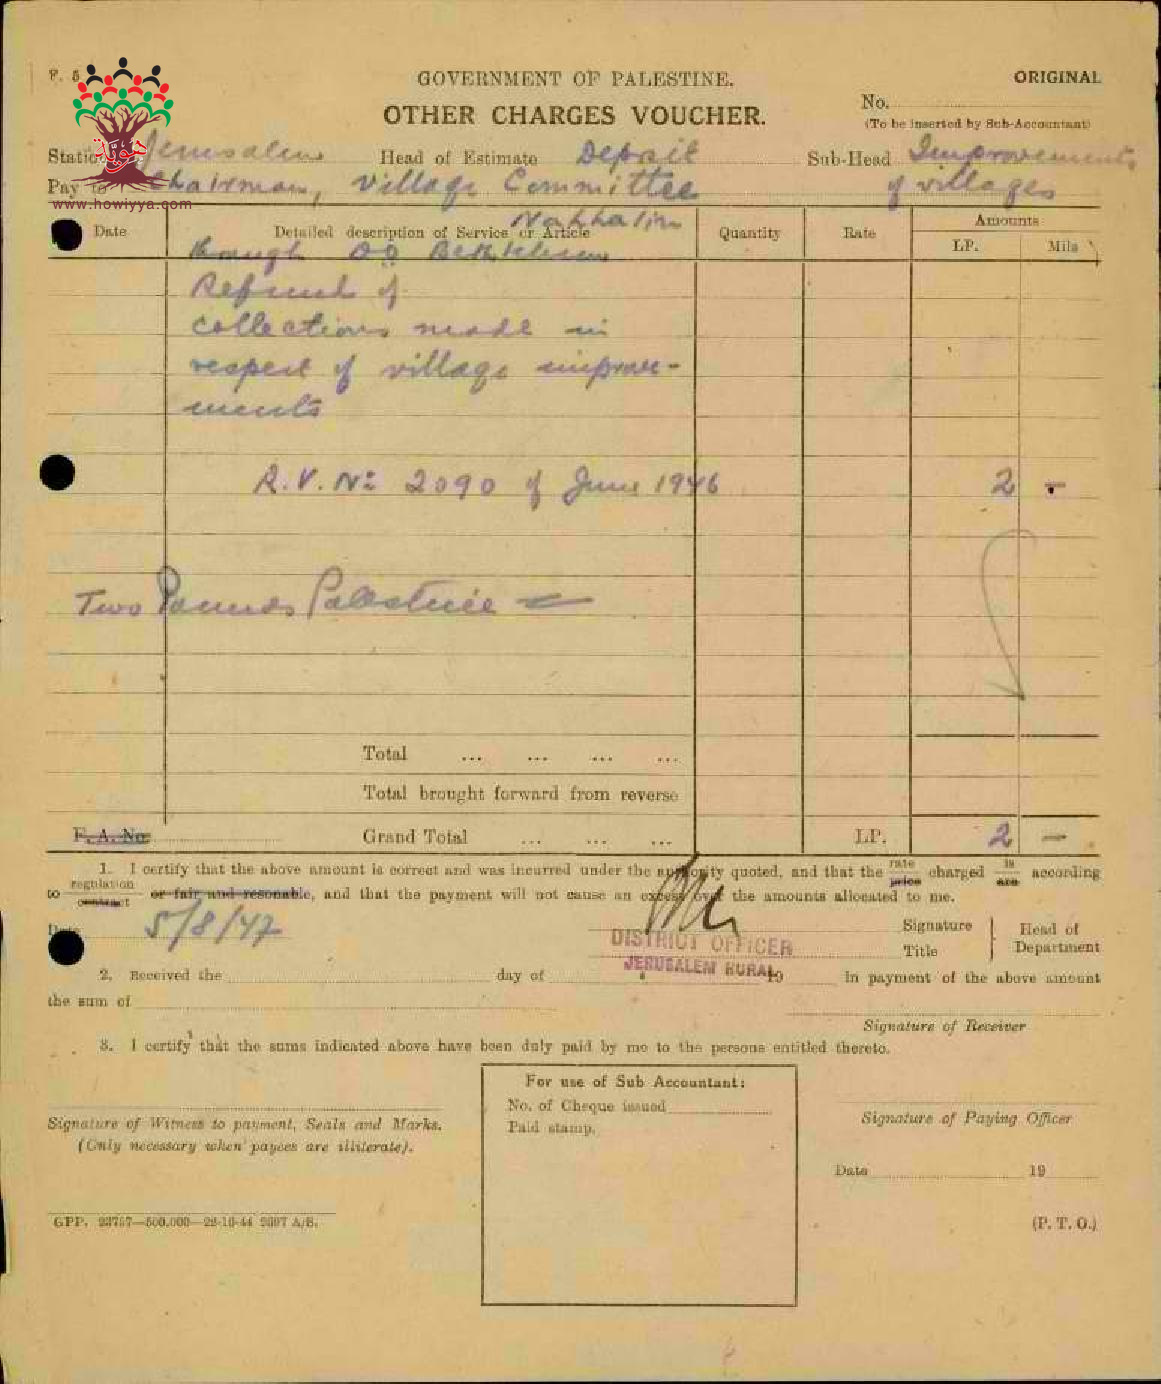 F. 5
GOVERNMENT OF PALESTINE.
ORIGINAL
OTHER CHARGES VOUCHER.
No.
(To be inserted by Sub-Accountant)
Station Jerusalem Head of Estimate Deposit Sub-Head Improvements
Pay to Chairman, Village Committee of villages
www.howiyya.com
Nahhalin
Date Detailed description of Service or Article Quantity Rate Amounts
LP. Mils
through DO Bethlehem
Refund of
collections made in
respect of village improve-
ments
R.V. No 2090 of June 1946 2 -
Two Pounds Palestine
Total ... ... ... ...
Total brought forward from reverse
F. A. No. Grand Total ... ... ... LP. 2 —
1. I certify that the above amount is correct and was incurred under the authority quoted, and that the rate price charged is are according
to regulation contract or fair and resonable, and that the payment will not cause an excess over the amounts allocated to me.
Date 5/8/47
Signature
Title
Head of Department
DISTRICT OFFICER
JERUSALEM RURAL
2. Received the day of 19 in payment of the above amount
the sum of
Signature of Receiver
3. I certify that the sums indicated above have been duly paid by me to the persons entitled thereto.
For use of Sub Accountant:
No. of Cheque issued
Paid stamp.
Signature of Witness to payment, Seals and Marks.
(Only necessary when payees are illiterate).
Signature of Paying Officer
Date 19
GPP. 23757—500.000—28-10-44 2697 A/S.
(P. T. O.)